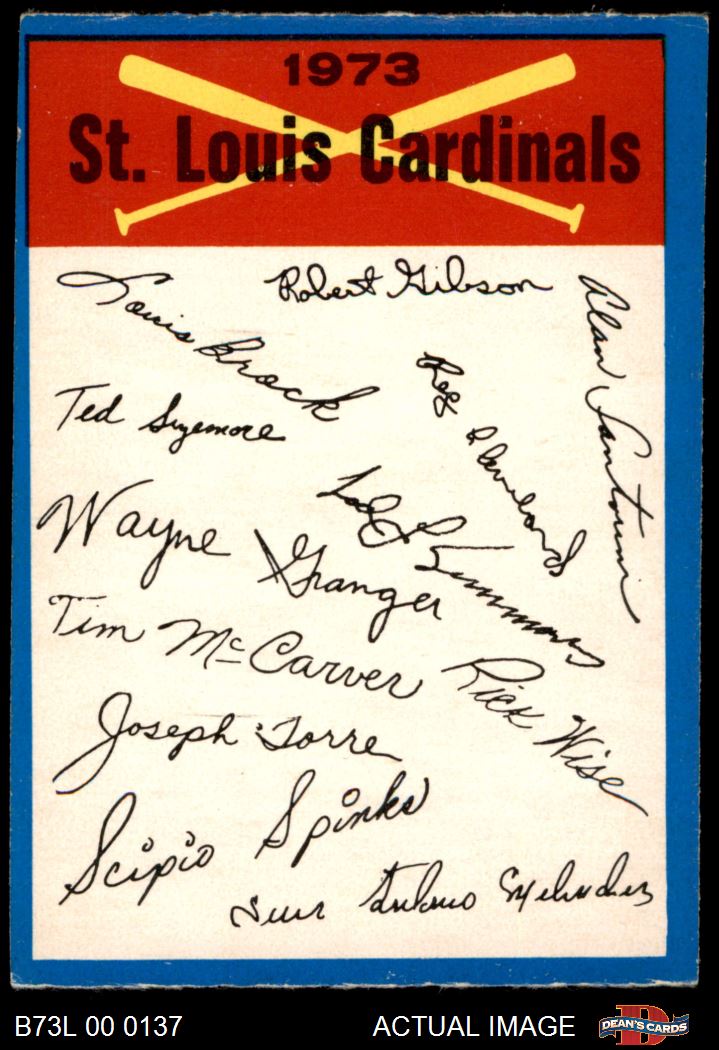 1973
St. Louis Cardinals
Robert Gibson
Louis Brock
Alan Santorini
Reg Cleveland
Ted Sizemore
Ted Simmons
Wayne Granger
Tim McCarver
Rick Wise
Joseph Torre
Scipio Spinks
Luis Antonio Melendez
B73L 00 0137
ACTUAL IMAGE
D
DEAN'S CARDS